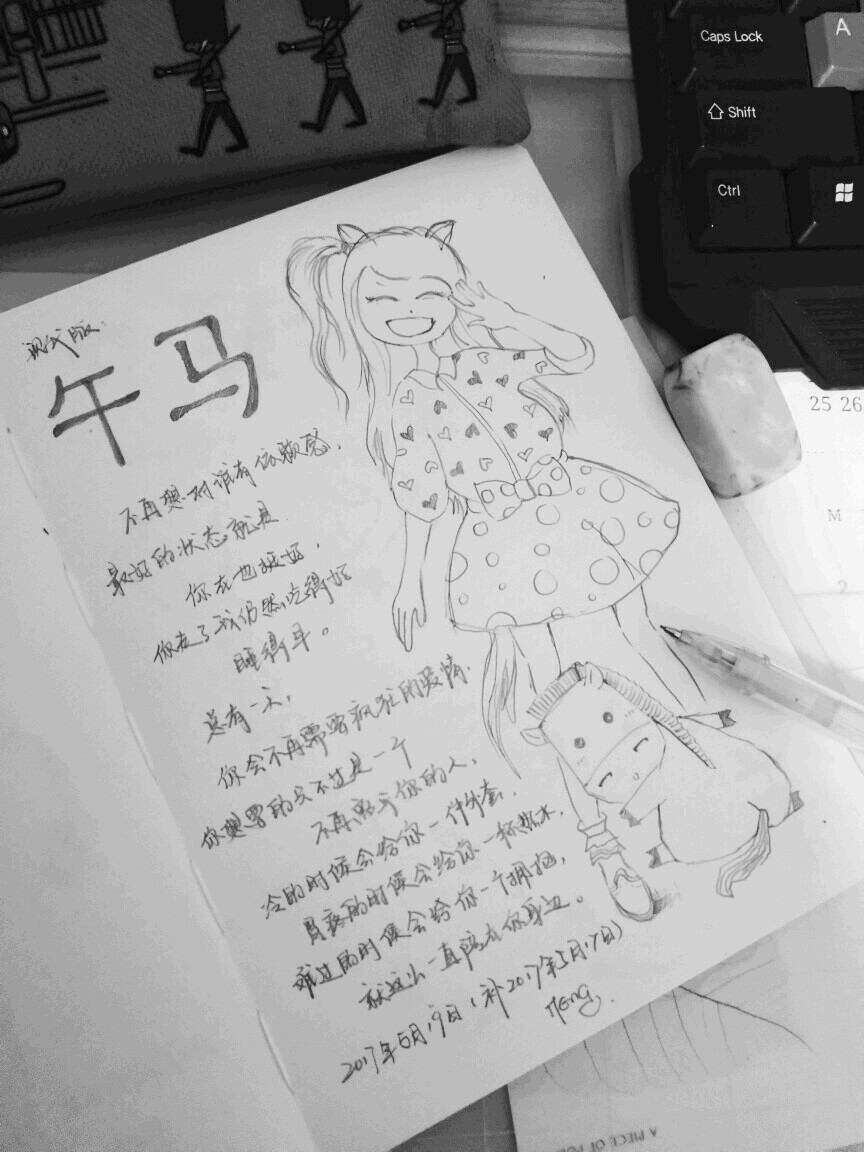 现代版
午马
不再想对谁有依赖感，
最好的状态就是
你在也挺好，
你走了我仍然吃得好
睡得早。
总有一天，
你会不再需要疯狂的爱情，
你想要的只不过是一个
不再离开你的人，
冷的时候会给你一件外套，
胃疼的时候会给你一杯热水，
难过的时候会给你一个拥抱，
就这么一直陪在你身边。
2017年5月19日（补2017年5月17日）
Meng.
Caps Lock
A
Shift
Ctrl
25 26
M
2
A PIECE OF